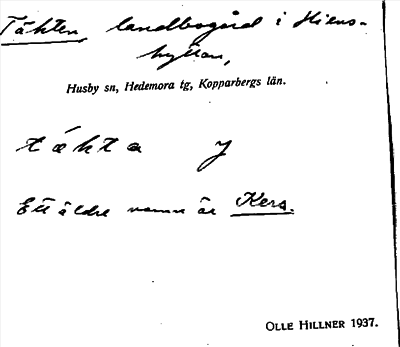 Täkten, landbogård i Hiens-
hyttan,
Husby sn, Hedemora tg, Kopparbergs län.
täkta J
Ett äldre namn är Kers.
OLLE HILLNER 1937.